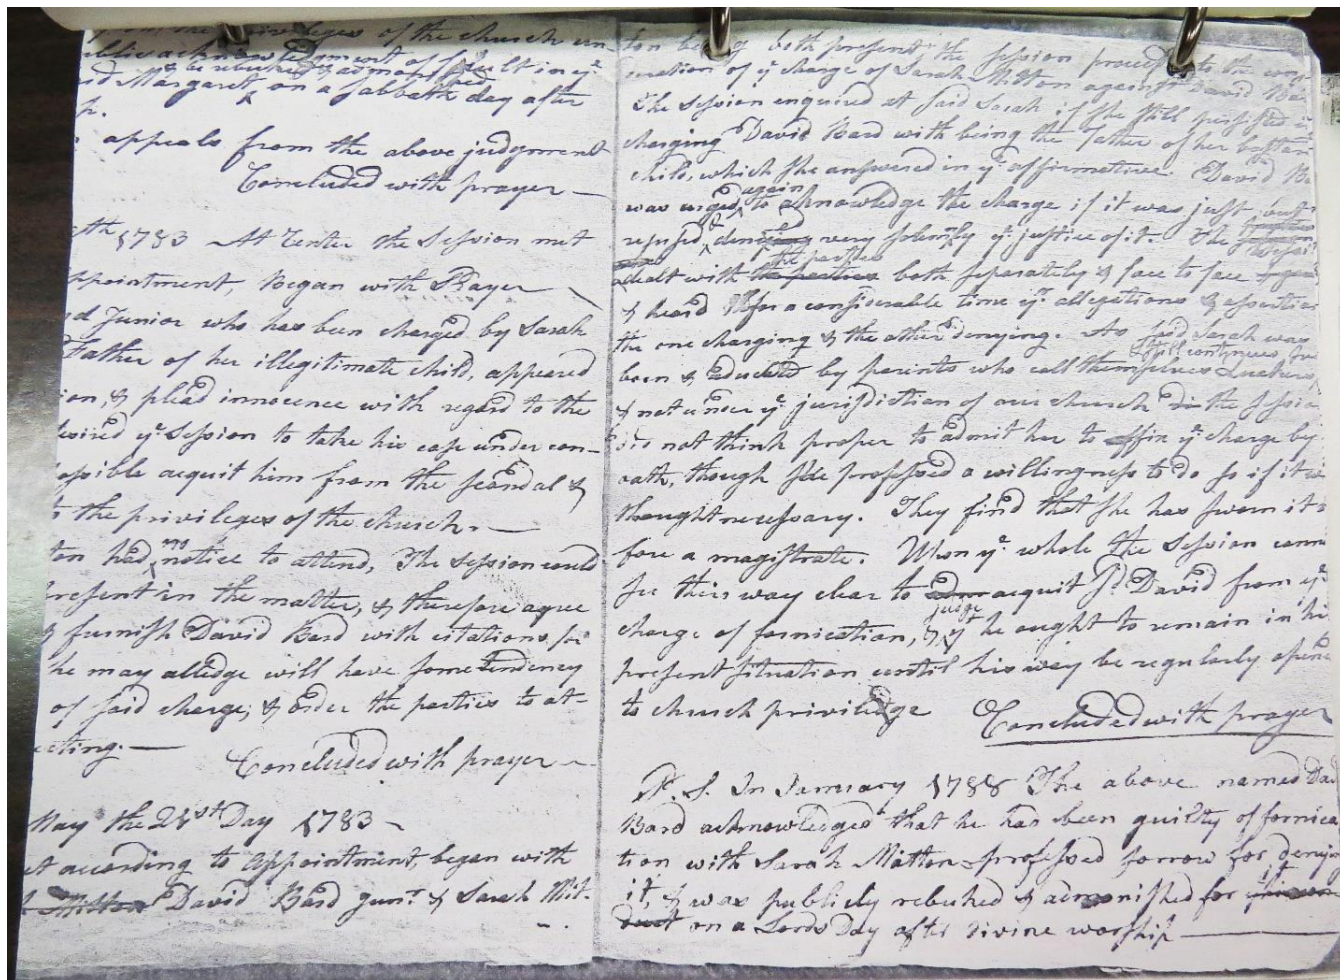 privileges of the church
acknowledgment of in ye.
& be rebuked & admonished
Margaret, on a Sabbath day after
appeals from the above judgment
Concluded with prayer —
1783 At Center the Session met
appointment, Began with Prayer
Junior who has been charged by Sarah
Father of her illegitimate child, appeared
& plead innocence with regard to the
ye. Session to take his case under con-
acquit him from the scandal &
the privileges of the church. —
no
ton had notice to attend, The session could
in the matter, & therefore agree
furnish David Bard with citations,
he may alledge will have some tendency
of said charge; & order the parties to at-
—
Concluded with prayer —
May the 21st Day 1783 –
according to appointment, began with
Mitton David Bard junr. & Sarah Mit-
ton being both present the session proceeded to the
of ye charge of Sarah Mitton against David
The Session enquired at said Sarah if she still persisted
charging David Bard with being the Father of her
child, which she answered in ye. affirmative. David
again
was urged to acknowledge the charge if it was just
refused & very solemnly ye. justice of it. The
the parties
dealt with the parties both separately & face to face
& heard for a considerable time ye. allegations &
the one charging & the other denying. As said Sarah was
still continues
born & educated by parents who call themselves Quakers
& not under ye. jurisdiction of our church the
did not think proper to admit her to ye. charge by
oath, though she professed a willingness to do so if it
thought necessary. They find that she has sworn it
fore a magistrate. Upon ye. whole the Session
see their way clear to acquit sd. David from ye
judge
charge of fornication, & yt he ought to remain in
present situation until his way be regularly
to church priviledge Concluded with prayer
P. S. In January 1788 The above named
Bard acknowledged that he has been guilty of fornica
tion with Sarah Mitton professed sorrow for
it
it, & was publicly rebuked & admonished for
on a Lords Day after divine worship —